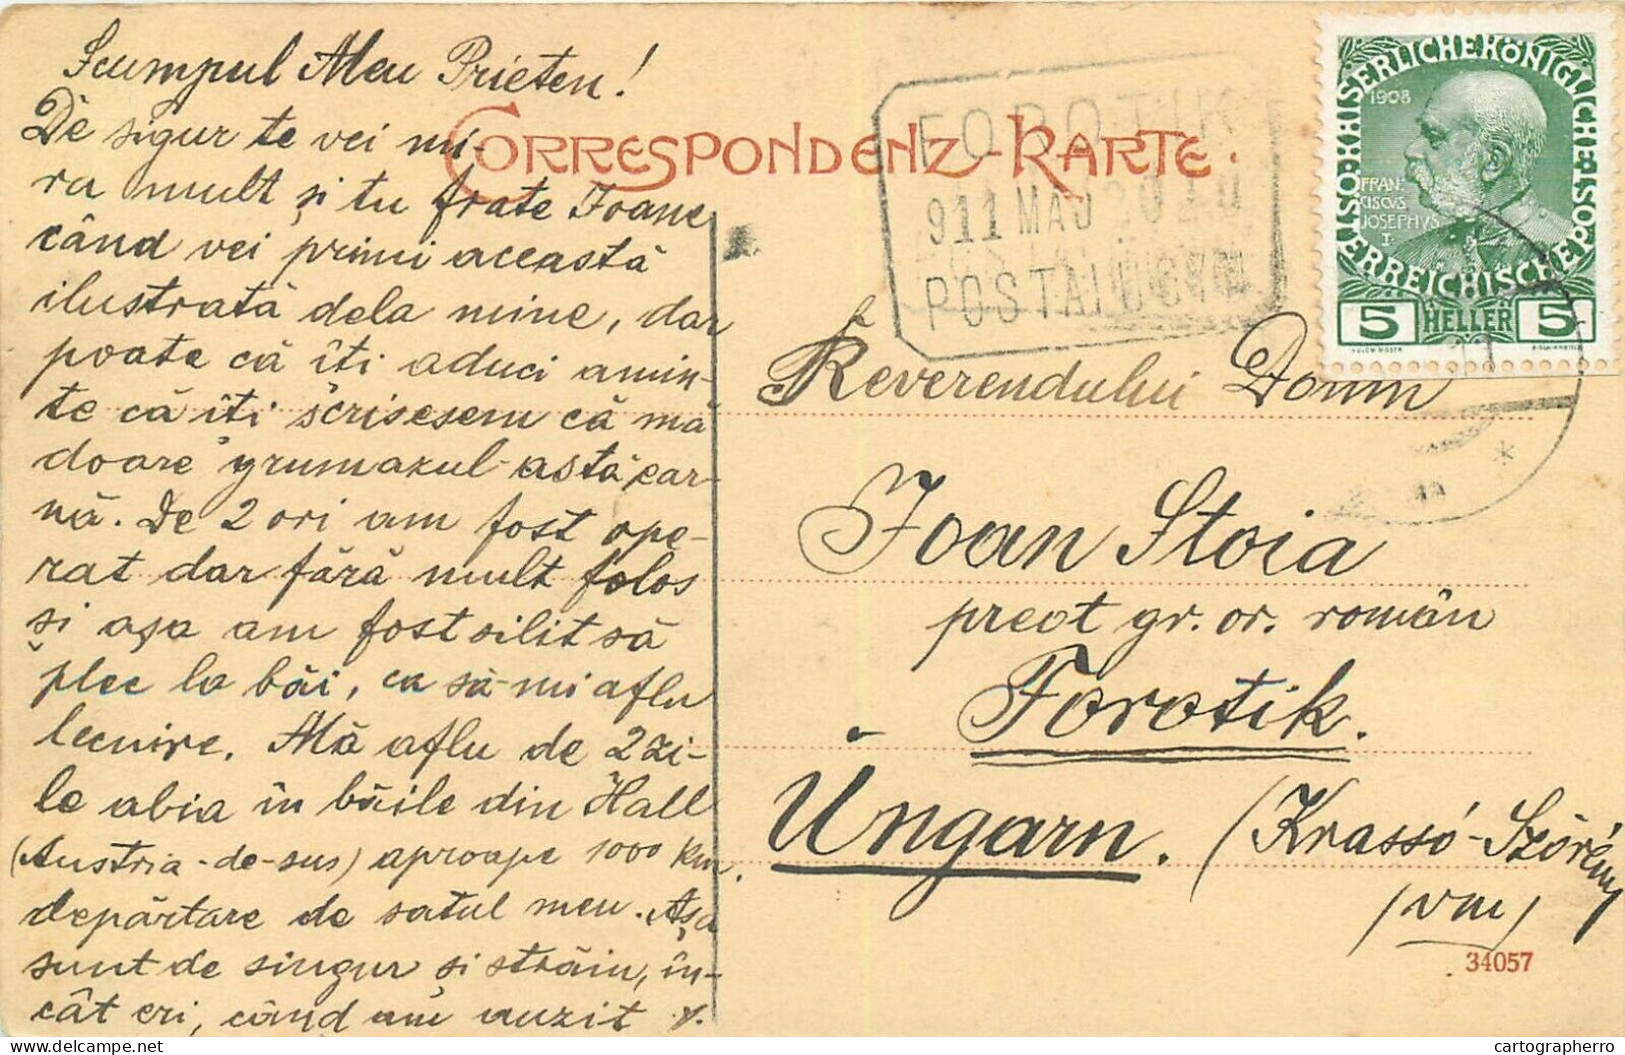 Scumpul Meu Prieten!
De sigur te vei mi-
ra mult și tu frate Ioane
când vei primi această
ilustrată dela mine, dar
poate că îți aduci amin-
te că îți scrisesem că mă
doare grumazul astă ear-
nă. De 2 ori am fost ope-
rat dar fără mult folos
și așa am fost silit să
plec la băi, ca să-mi aflu
lecuire. Mă aflu de 2 zi-
le abia în băile din Hall
(Austria-de-sus) aproape 1000 km.
depărtare de satul meu. Așa
sunt de singur și străin, în-
cât eri, când am auzit
CORRESPONDENZ-KARTE.
FOROTIK
911 MAJ
POSTAI ÜGYN
KAISERLICHE KÖNIGLICHE ÖSTERREICHISCHE POST
1908
FRAN-
CISCVS
JOSEPHVS
I
5 HELLER 5
Reverendului Domn
Ioan Stoia
preot gr. or. român
Forotik.
Ungarn. (Krassó-Szörény
vm)
34057
delcampe.net
cartographerro